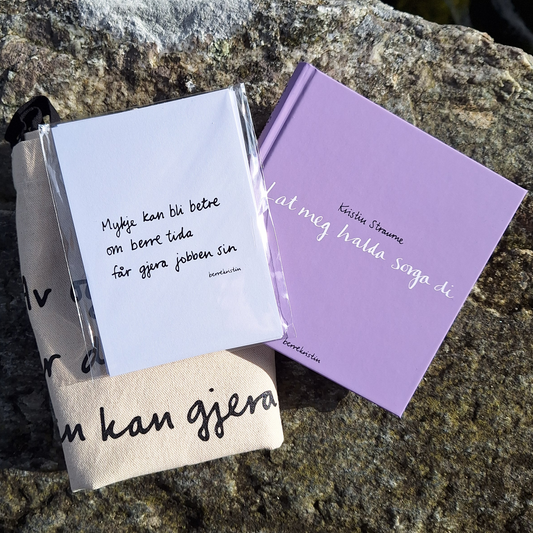 Mykje kan bli betre
om berre tida
får gjera jobben sin
berrekristin
Kristin Straume
Lat meg halda sorga di
berrekristin
Av
kan gjera